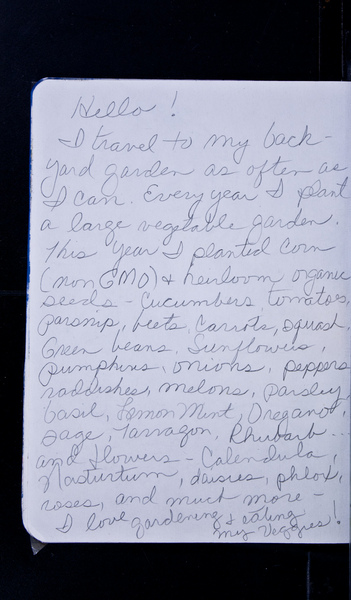 Hello!
I travel to my back-
yard garden as often as
I can. Every year I plant
a large vegetable garden.
This year I planted corn
(non GMO) & heirloom organic
seeds - Cucumbers, tomatoes,
parsnip, beets, carrots, squash,
Green beans, Sunflowers,
pumpkins, onions, peppers
raddishes, melons, parsley,
basil, Lemon Mint, Oregano,
Sage, Tarragon, Rhubarb...
and flowers - Calendula,
Nasturtium, daisies, phlox,
roses, and much more -
I love gardening & eating
my Veggies!